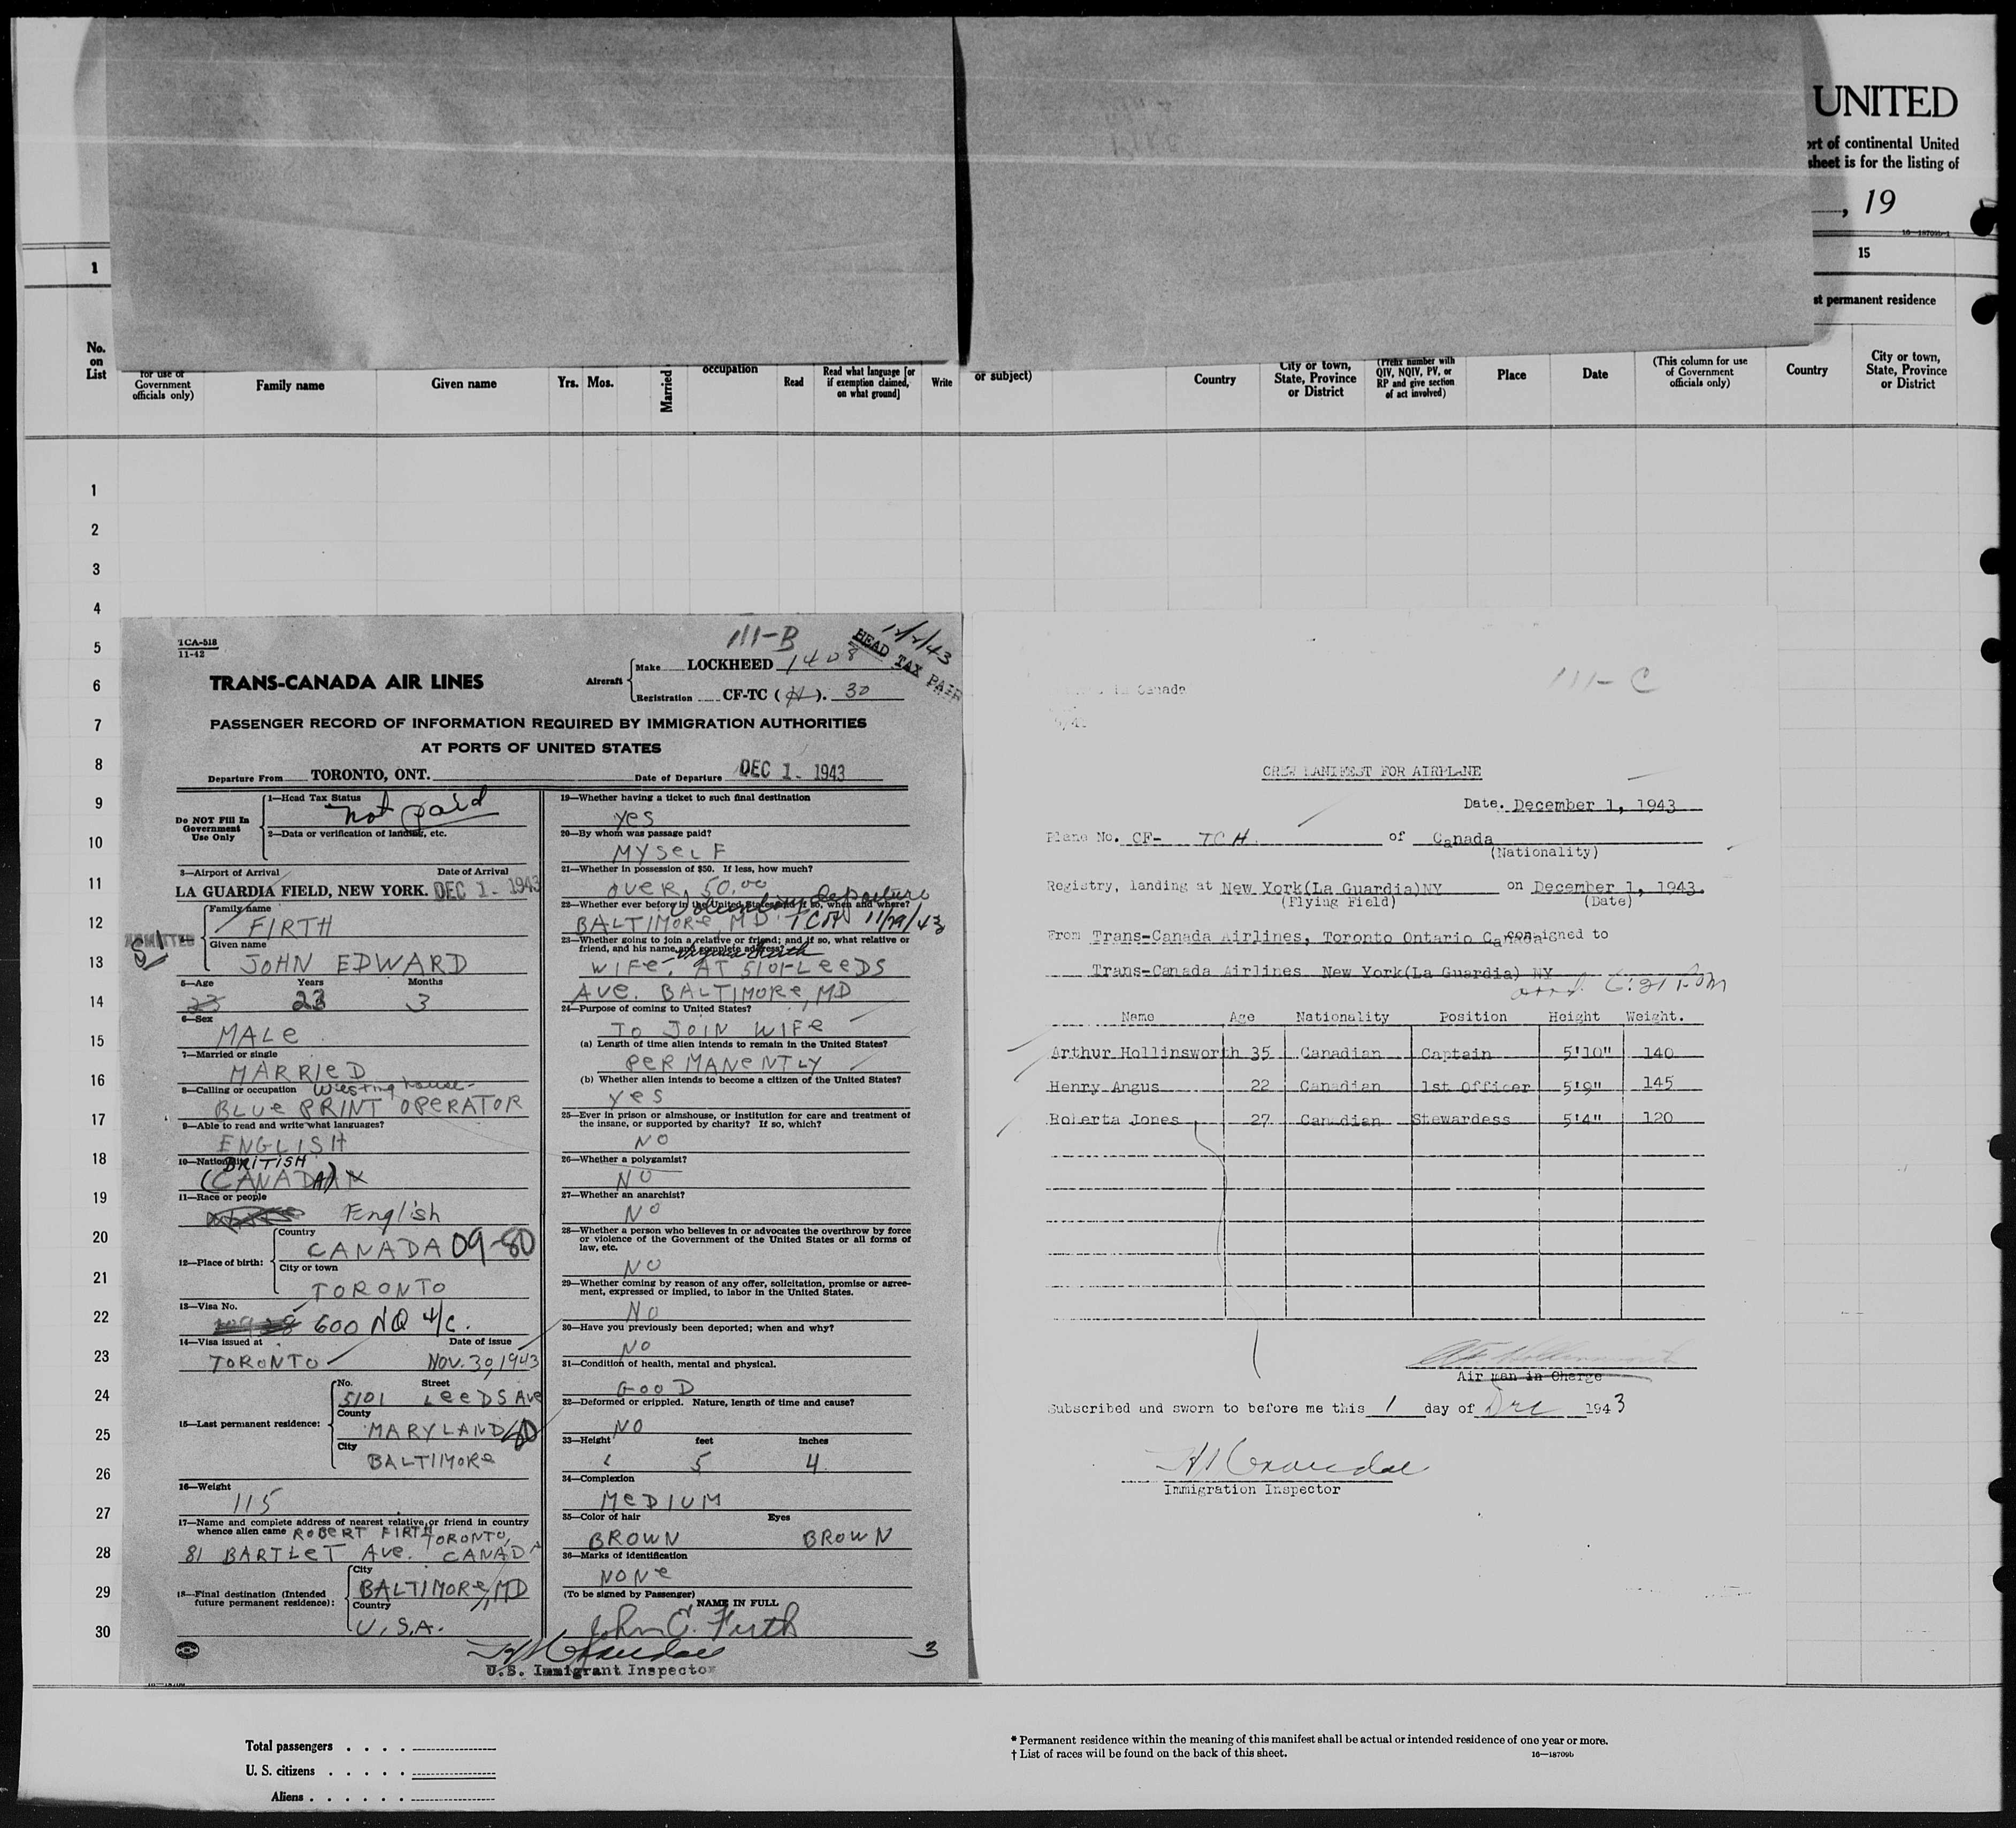 UNITED
ort of continental United
sheet is for the listing of
, 19
16—18709b-1
1
15
st permanent residence
No.
on
List
for use of
Government
officials only)
Family name
Given name
Yrs. Mos.
Married
occupation
Read
Read what language [or
if exemption claimed,
on what ground]
Write
or subject)
Country
City or town,
State, Province
or District
(Prefix number with
QIV, NQIV, PV, or
RP and give section
of act involved)
Place
Date
(This column for use
of Government
officials only)
Country
City or town,
State, Province
or District
1
2
3
4
5
6
7
8
9
10
11
12
13
14
15
16
17
18
19
20
21
22
23
24
25
26
27
28
29
30
TCA-518
11-42
111-B
12/2/43
HEAD TAX PAID
TRANS-CANADA AIR LINES
Aircraft
Make LOCKHEED 1408
Registration CF-TC (H). 30
PASSENGER RECORD OF INFORMATION REQUIRED BY IMMIGRATION AUTHORITIES
AT PORTS OF UNITED STATES
Departure From TORONTO, ONT. Date of Departure DEC 1 - 1943
Do NOT Fill In
Government
Use Only
1—Head Tax Status
not paid
2—Data or verification of landing, etc.
3—Airport of Arrival Date of Arrival
LA GUARDIA FIELD, NEW YORK. DEC 1 - 1943
ADMITTED
Family name
FIRTH
Given name
JOHN EDWARD
5—Age Years Months
23 23 3
6—Sex
MALE
7—Married or single
MARRIED
8—Calling or occupation Westinghouse-
BLUE PRINT OPERATOR
9—Able to read and write what languages?
ENGLISH
10—Nationality BRITISH
(CANADA)
11—Race or people
English
12—Place of birth:
Country
CANADA 09-80
City or town
TORONTO
13—Visa No.
600 NQ 4/c.
14—Visa issued at Date of issue
TORONTO NOV. 30, 1943
15—Last permanent residence:
No. Street
5101 LEEDS AVE
County
MARYLAND
City
BALTIMORE
16—Weight
115
17—Name and complete address of nearest relative or friend in country
whence alien came ROBERT FIRTH
81 BARTLET AVE. TORONTO, CANADA
18—Final destination (Intended
future permanent residence):
City
BALTIMORE, MD
Country
U.S.A.
19—Whether having a ticket to such final destination
yes
20—By whom was passage paid?
MYSELF
21—Whether in possession of $50. If less, how much?
OVER 50.00
22—Whether ever before in the United States and if so, when and where?
Voluntary departure
BALTIMORE, MD TCA 11/29/43
23—Whether going to join a relative or friend; and if so, what relative or
friend, and his name and complete address?
Virginia Firth
WIFE. AT 5101-LEEDS
AVE. BALTIMORE, MD
24—Purpose of coming to United States?
TO JOIN WIFE
(a) Length of time alien intends to remain in the United States?
PERMANENTLY
(b) Whether alien intends to become a citizen of the United States?
YES
25—Ever in prison or almshouse, or institution for care and treatment of
the insane, or supported by charity? If so, which?
NO
26—Whether a polygamist?
NO
27—Whether an anarchist?
NO
28—Whether a person who believes in or advocates the overthrow by force
or violence of the Government of the United States or all forms of
law, etc.
NO
29—Whether coming by reason of any offer, solicitation, promise or agree-
ment, expressed or implied, to labor in the United States.
NO
30—Have you previously been deported; when and why?
NO
31—Condition of health, mental and physical.
GOOD
32—Deformed or crippled. Nature, length of time and cause?
NO
33—Height feet inches
5 4
34—Complexion
MEDIUM
35—Color of hair Eyes
BROWN BROWN
36—Marks of identification
NONE
(To be signed by Passenger) NAME IN FULL
John E. Firth
U.S. Immigrant Inspector
3
in Canada
111-C
CREW MANIFEST FOR AIRPLANE
Date. December 1, 1943
Plane No. CF- TCH. of Canada
(Nationality)
Registry, landing at New York(La Guardia)NY on December 1, 1943.
(Flying Field) (Date)
From Trans-Canada Airlines, Toronto Ontario Canada consigned to
Trans-Canada Airlines New York(La Guardia) NY
arrd. 6:21 P.M
Name Age Nationality Position Height Weight.
Arthur Hollinsworth 35 Canadian Captain 5'10" 140
Henry Angus 22 Canadian 1st Officer 5'9" 145
Roberta Jones 27 Canadian Stewardess 5'4" 120
Air man in Charge
Subscribed and sworn to before me this 1 day of Dec 1943
Immigration Inspector
Total passengers . . . .
U. S. citizens . . . . .
Aliens . . . . . .
* Permanent residence within the meaning of this manifest shall be actual or intended residence of one year or more.
† List of races will be found on the back of this sheet.
16—18709b